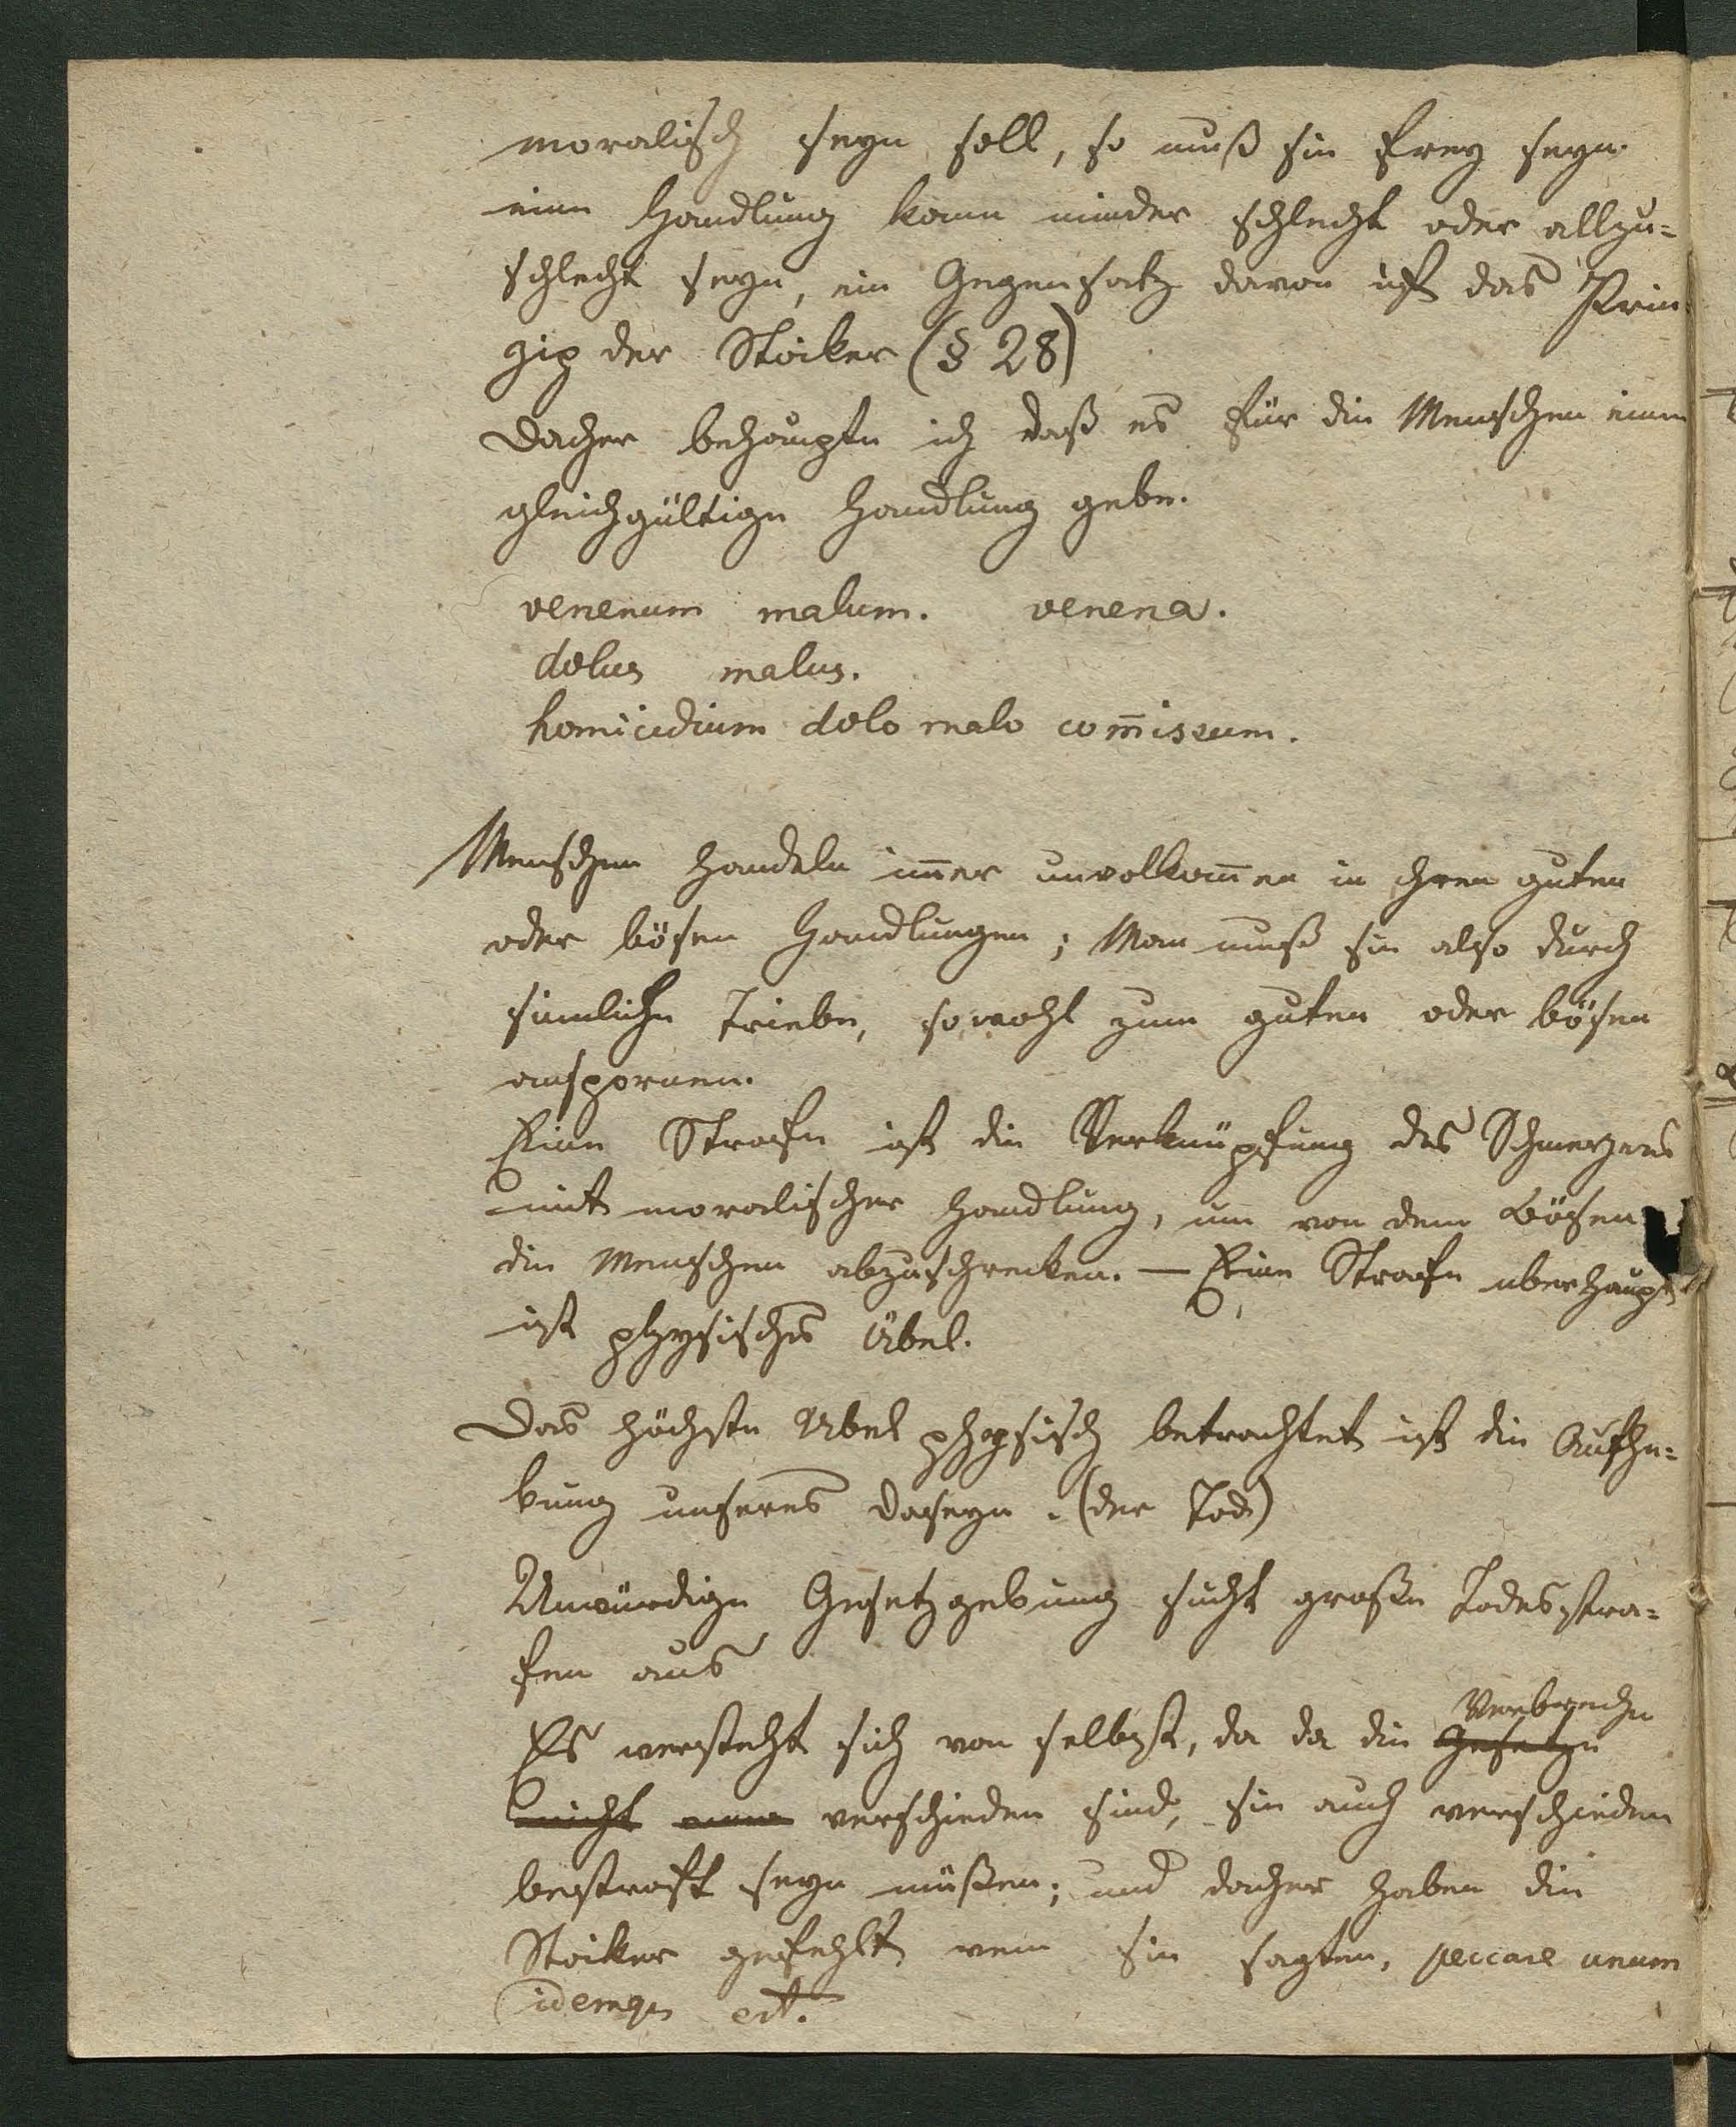 moralisch seyn soll, so muß sie frey seyn.
eine Handlung kann minder schlecht oder allzu-
schlecht seyn, ein Gegensatz davon ist das Prin
zip der Stoiker (§ 28)
Daher behaupte ich daß es für die Menschen eine
gleichgültige Handlung gebe.
venenum malum. venena.
dolus malus.
homicidium dolo malo com̅issum.
Menschen handeln im̅er unvolkom̅en in ihren guten
oder bösen Handlungen; Man muß sie also durch
sinnliche Triebe, sowohl zum guten oder bösen
anspornen.
Eine Strafe ist die Verknüpfung des Schmerzens
mit moralischer Handlung, um von dem Bösen
die Menschen abzuschrecken. — Eine Strafe uberhaupt
ist physisches Übel.
Das höchste Übel physisch betrachtet ist die Aufhe-
bung unseres Daseyn. (der Tod)
Unwürdige Gesetzgebung sucht große Todesstra-
fen aus
Verbreche
Es versteht sich von selbst, da da die Gesetze
nicht verschieden sind, sie auch verschieden
bestraft seyn müßen; und daher haben die
Stoiker gefehlt wen sie sagten, peccare unum
idemq est.